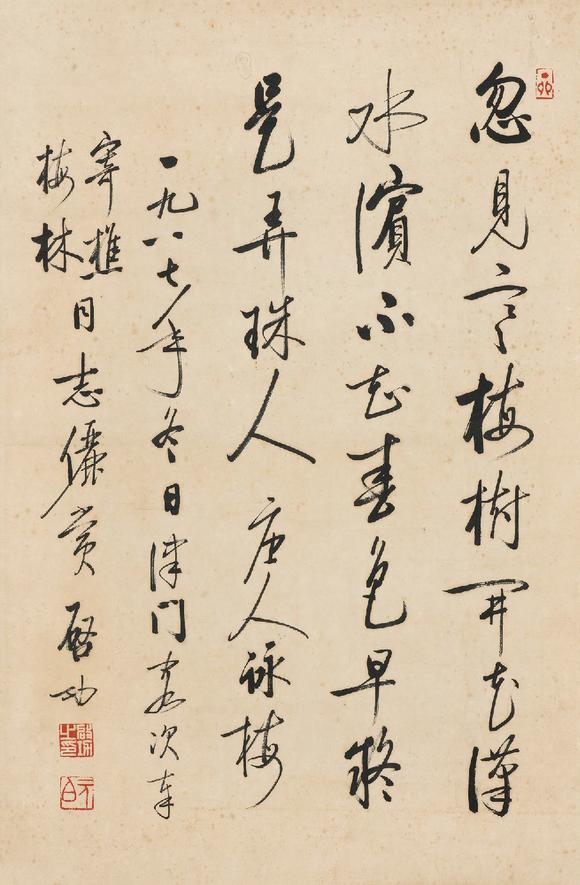 忽見寒梅樹開花漢
水濱不知春色早疑
是弄珠人 唐人詠梅
一九八七年冬日津門客次奉
寄樵
梅林
同志儷賞 啓功
啟功之印
元白